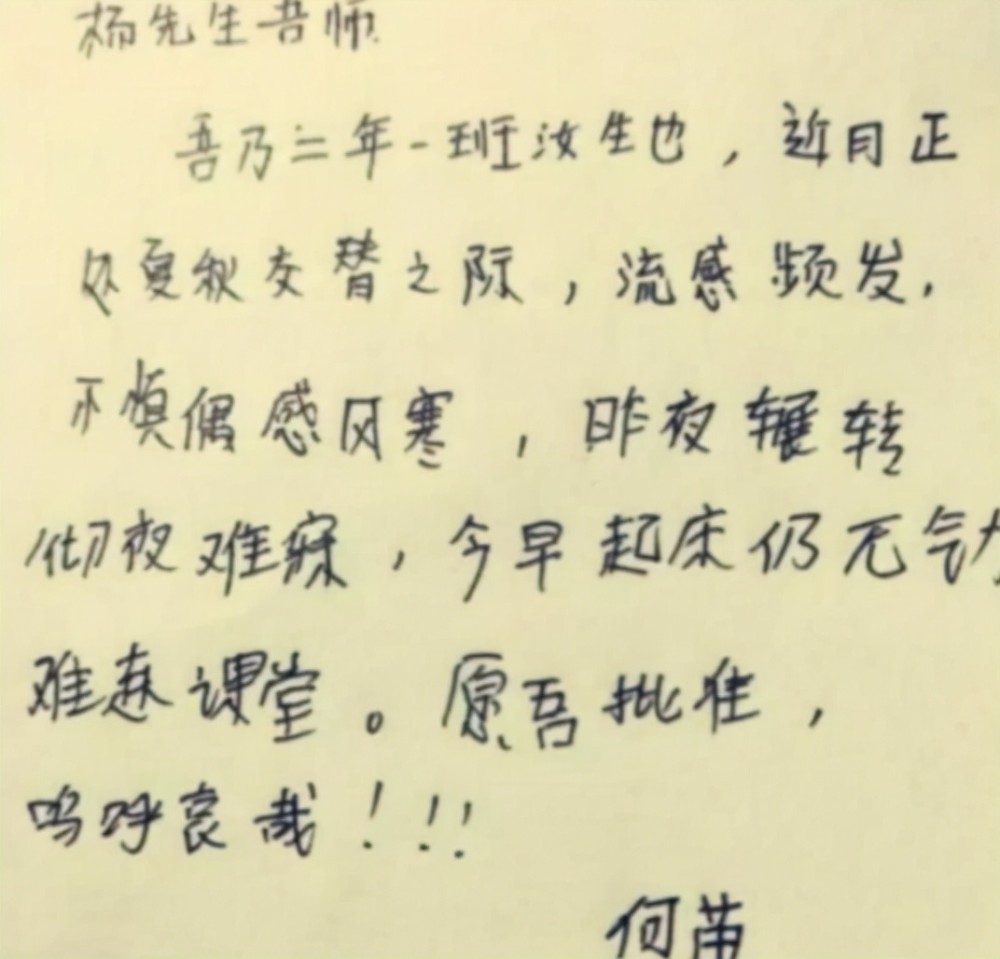 杨先生吾师
吾乃二年一班汝生也，近月正
处夏秋交替之际，流感频发，
不慎偶感风寒，昨夜辗转
彻夜难寐，今早起床仍无气力
难赴课堂。愿吾批准，
呜呼哀哉！！！
何苗